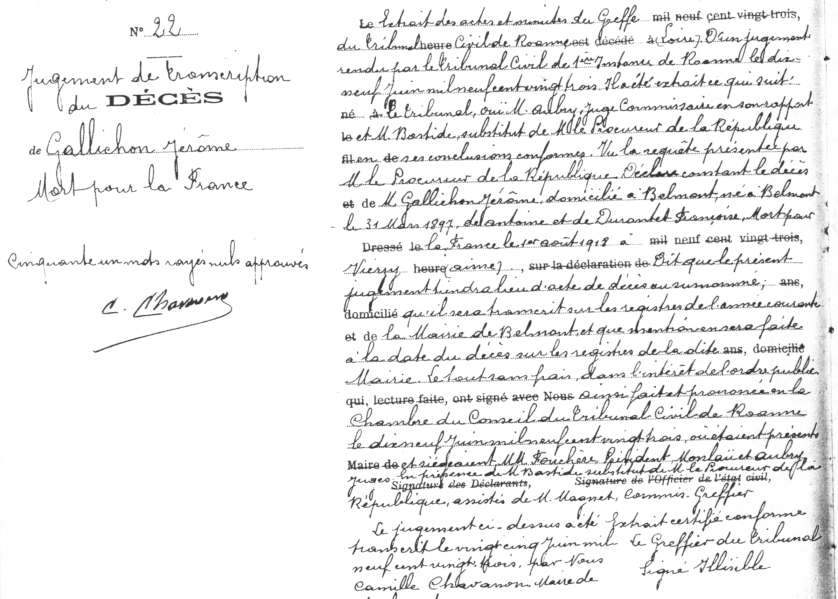 N° 22
Jugement de transcription
du DÉCÈS
de Gallichon Jérôme
Mort pour la France
Cinquante un mots rayés nuls approuvés
C. Chavanon
Le Extrait des actes et minutes du Greffe mil neuf cent vingt trois,
du Tribunal heure Civil de Roanne est décédé à (Loire). D'un jugement
rendu par le Tribunal Civil de 1ère Instance de Roanne le dix-
neuf Juin mil neuf cent vingt trois. Il a été extrait ce qui suit:
né à Le Tribunal, ouï M. Aubry, Juge Commissaire en son rapport
le et M. Bastide, substitut de M. le Procureur de la République
fil en de ses conclusions conformes. Vu la requête présentée par
M. le Procureur de la République. Déclare constant le décès
et de M. Gallichon Jérôme, domicilié à Belmont, né à Belmont
le 31 Mars 1897, de antoine et de Durantet Françoise, Mort pour
Dressé le la France le 1er août 1918 à mil neuf cent vingt trois,
Vierzy heure (aisne), sur la déclaration de Dit que le présent
jugement tiendra lieu d'acte de décès au susnommé; ans,
domicilié qu'il sera transcrit sur les registres de l'année courante
et de la Mairie de Belmont, et que mention en sera faite
à la date du décès sur les registres de la dite ans, domicilié
Mairie. Le tout sans frais, dans l'intérêt de l'ordre public
qui, lecture faite, ont signé avec Nous ainsi fait et prononcé en la
Chambre du Conseil du Tribunal Civil de Roanne
le dix neuf Juin mil neuf cent vingt trois, où étaient présents
Maire de et siégeaient MM. Fouchère, Président Monlaü et Aubry,
Juges. En présence de M. Bastide substitut de M. le Procureur de la
Signature des Déclarants, Signature de l'Officier de l'état civil,
République, assistés de M. Magnet, Commis-Greffier
Le jugement ci-dessus a été
transcrit le vingt cinq Juin mil
neuf cent vingt trois, par Nous
Camille Chavanon Maire de
Extrait certifié conforme
Le Greffier du Tribunal
Signé Illisible